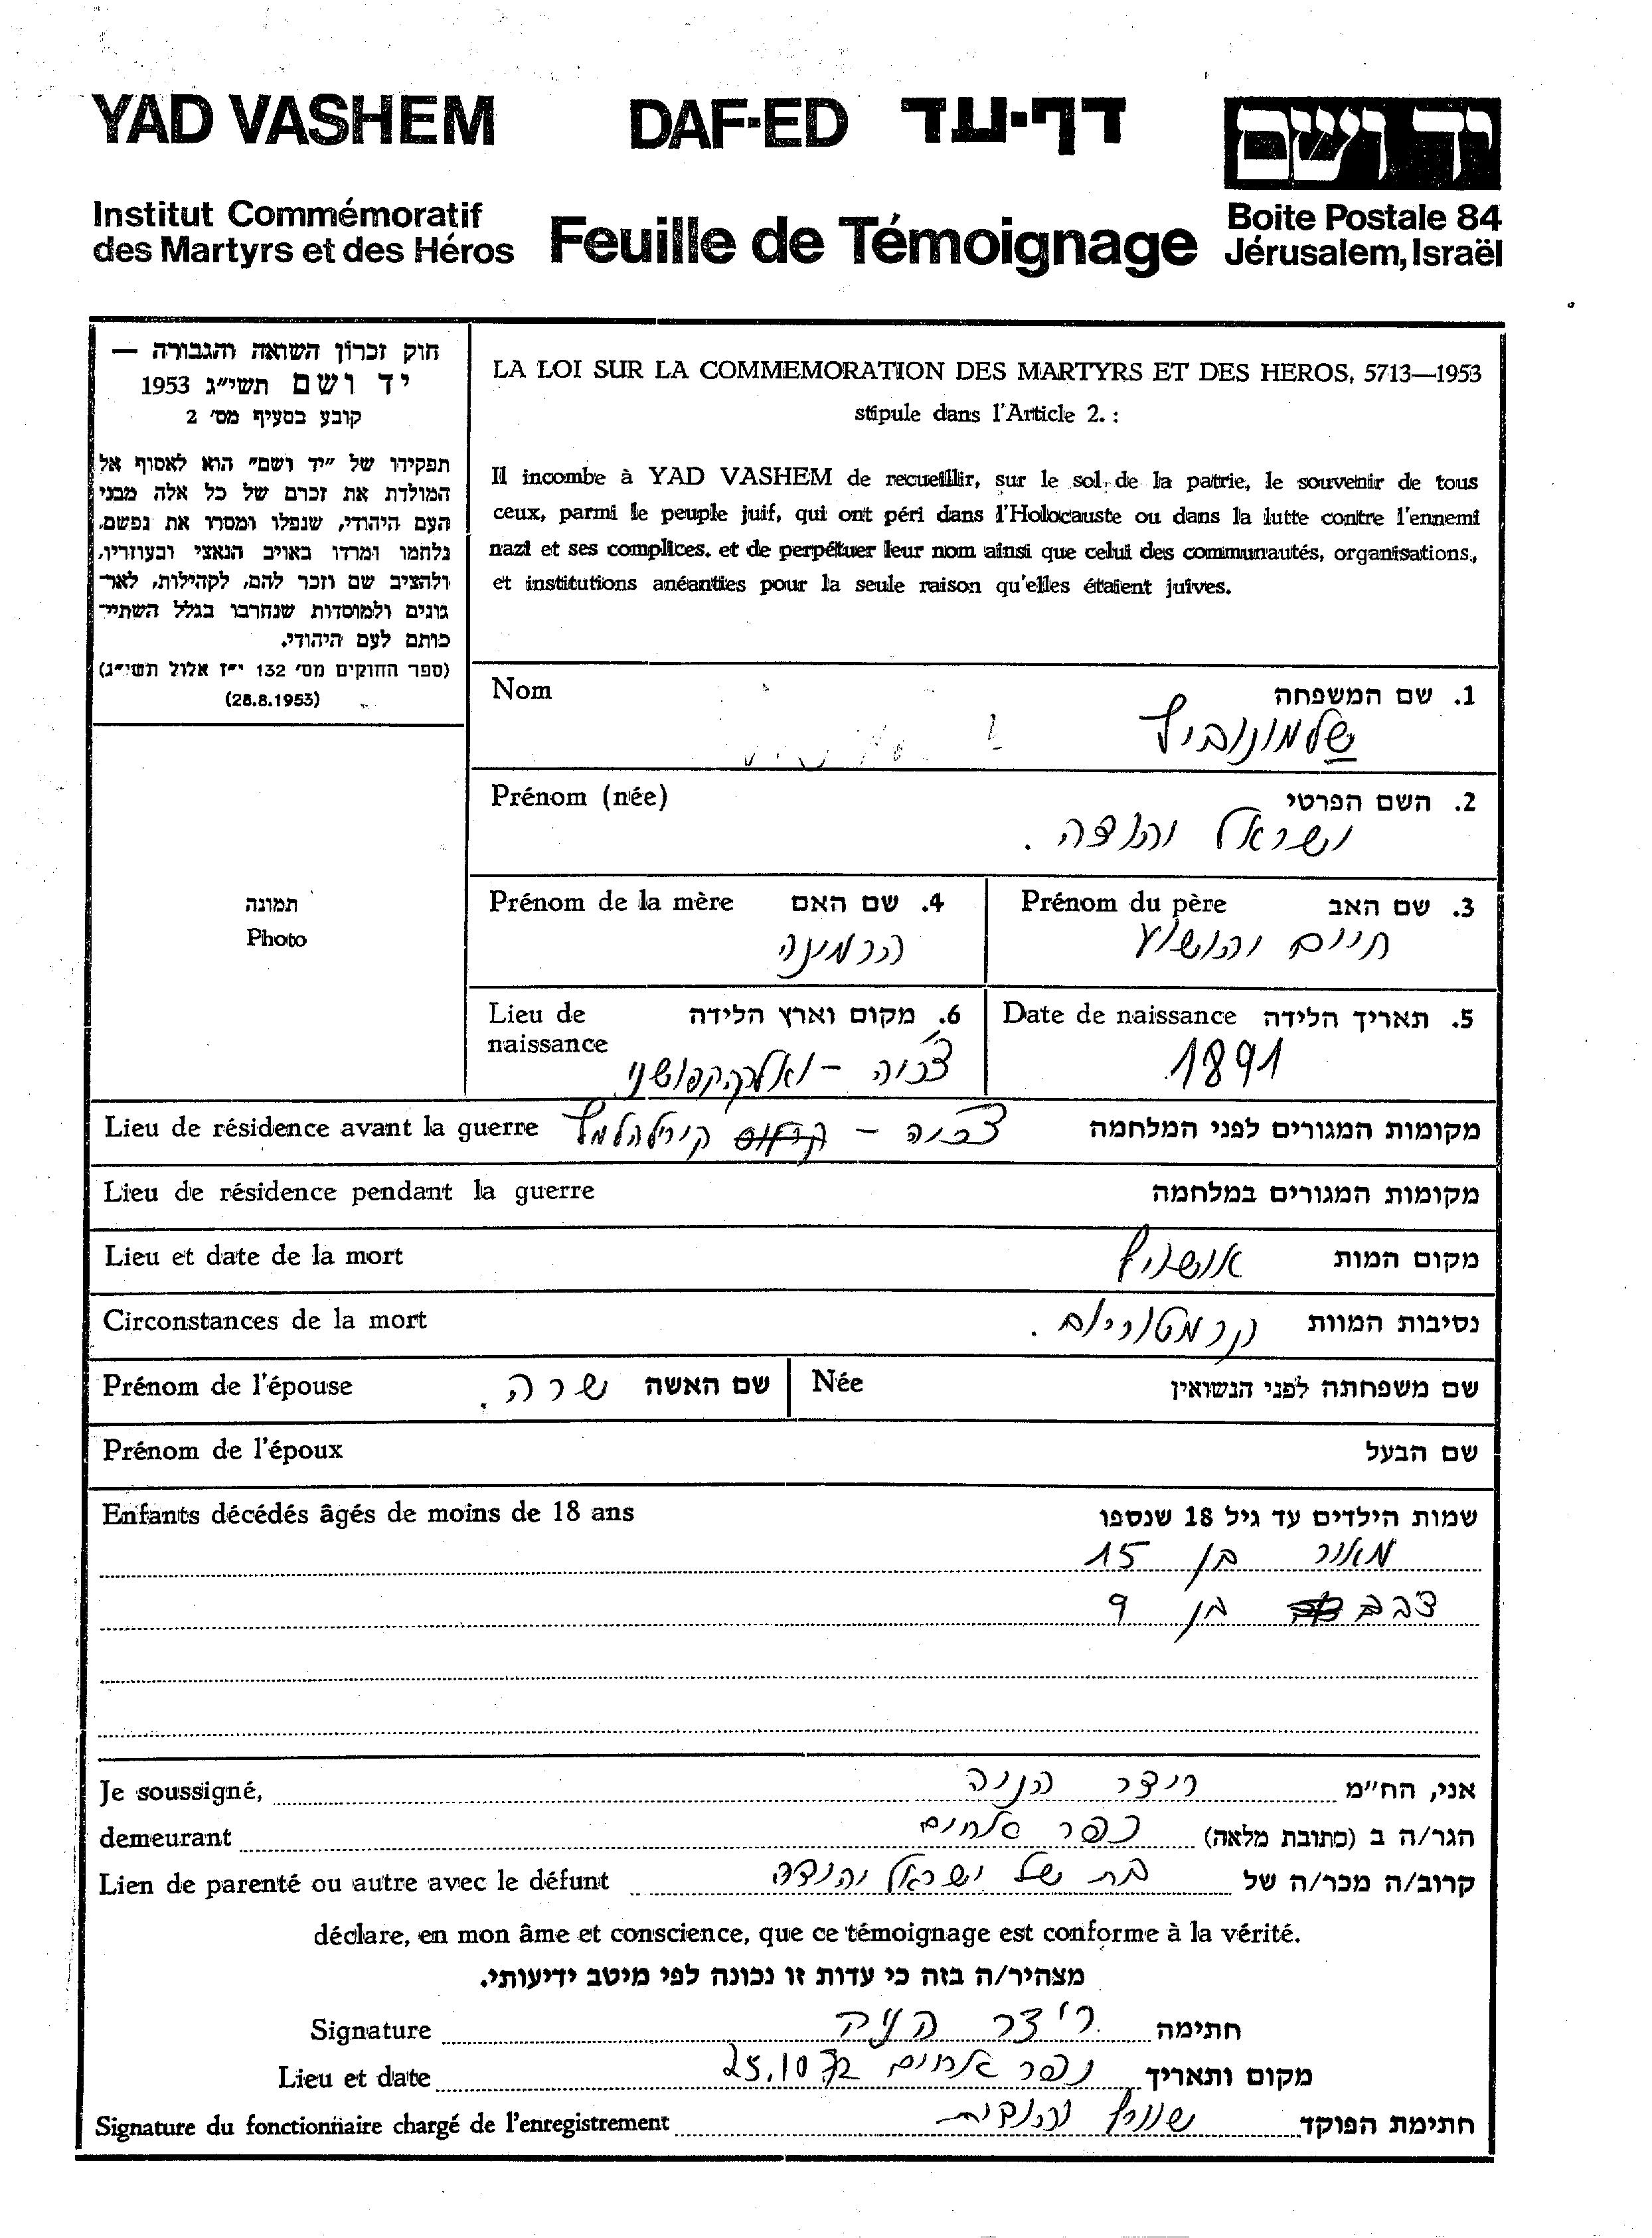 YAD VASHEM DAF-ED דף-עד יד ושם
Institut Commémoratif
des Martyrs et des Héros
Feuille de Témoignage
Boite Postale 84
Jérusalem, Israël
חוק זכרון השואה והגבורה —
יד ושם תשי״ג 1953
קובע בסעיף מס׳ 2
תפקידו של ״יד ושם״ הוא לאסוף אל
המולדת את זכרם של כל אלה מבני
העם היהודי, שנפלו ומסרו את נפשם,
נלחמו ומרדו באויב הנאצי ובעוזריו,
ולהציב שם וזכר להם, לקהילות, לאר־
גונים ולמוסדות שנחרבו בגלל השתיי־
כותם לעם היהודי.
(ספר החוקים מס׳ 132 י״ז אלול תשי״ג)
(28.8.1953)
LA LOI SUR LA COMMEMORATION DES MARTYRS ET DES HEROS, 5713—1953
stipule dans l'Article 2. :
Il incombe à YAD VASHEM de recueillir, sur le sol de la patrie, le souvenir de tous
ceux, parmi le peuple juif, qui ont péri dans l'Holocauste ou dans la lutte contre l'ennemi
nazi et ses complices. et de perpétuer leur nom ainsi que celui des communautés, organisations,
et institutions anéanties pour la seule raison qu'elles étaient juives.
תמונה
Photo
Nom 1. שם המשפחה
שלמונוביץ
Prénom (née) 2. השם הפרטי
ישראל יהודה.
Prénom du père 3. שם האב
חיים יהושע
Prénom de la mère 4. שם האם
הרמינה
Date de naissance 5. תאריך הלידה
1891
Lieu de naissance 6. מקום וארץ הלידה
צ'כיה -
Lieu de résidence avant la guerre מקומות המגורים לפני המלחמה
צ'כיה - קירילהלמץ
Lieu de résidence pendant la guerre מקומות המגורים במלחמה
Lieu et date de la mort מקום המות
אושויץ
Circonstances de la mort נסיבות המוות
קרמטוריום.
Prénom de l'épouse שם האשה שרה.
Née שם משפחתה לפני הנשואין
Prénom de l'époux שם הבעל
Enfants décédés âgés de moins de 18 ans שמות הילדים עד גיל 18 שנספו
מאיר בן 15
בן 9
Je soussigné, אני, הח״מ
ריצר הניה
demeurant הגר/ה ב (כתובת מלאה)
כפר אחים
Lien de parenté ou autre avec le défunt קרוב/ה מכר/ה של
בת של ישראל יהודה
déclare, en mon âme et conscience, que ce témoignage est conforme à la vérité.
מצהיר/ה בזה כי עדות זו נכונה לפי מיטב ידיעותי.
Signature חתימה
ריצר הניה
Lieu et date מקום ותאריך
כפר אחים 25.10.72
Signature du fonctionnaire chargé de l'enregistrement חתימת הפוקד
שוורץ יהודית